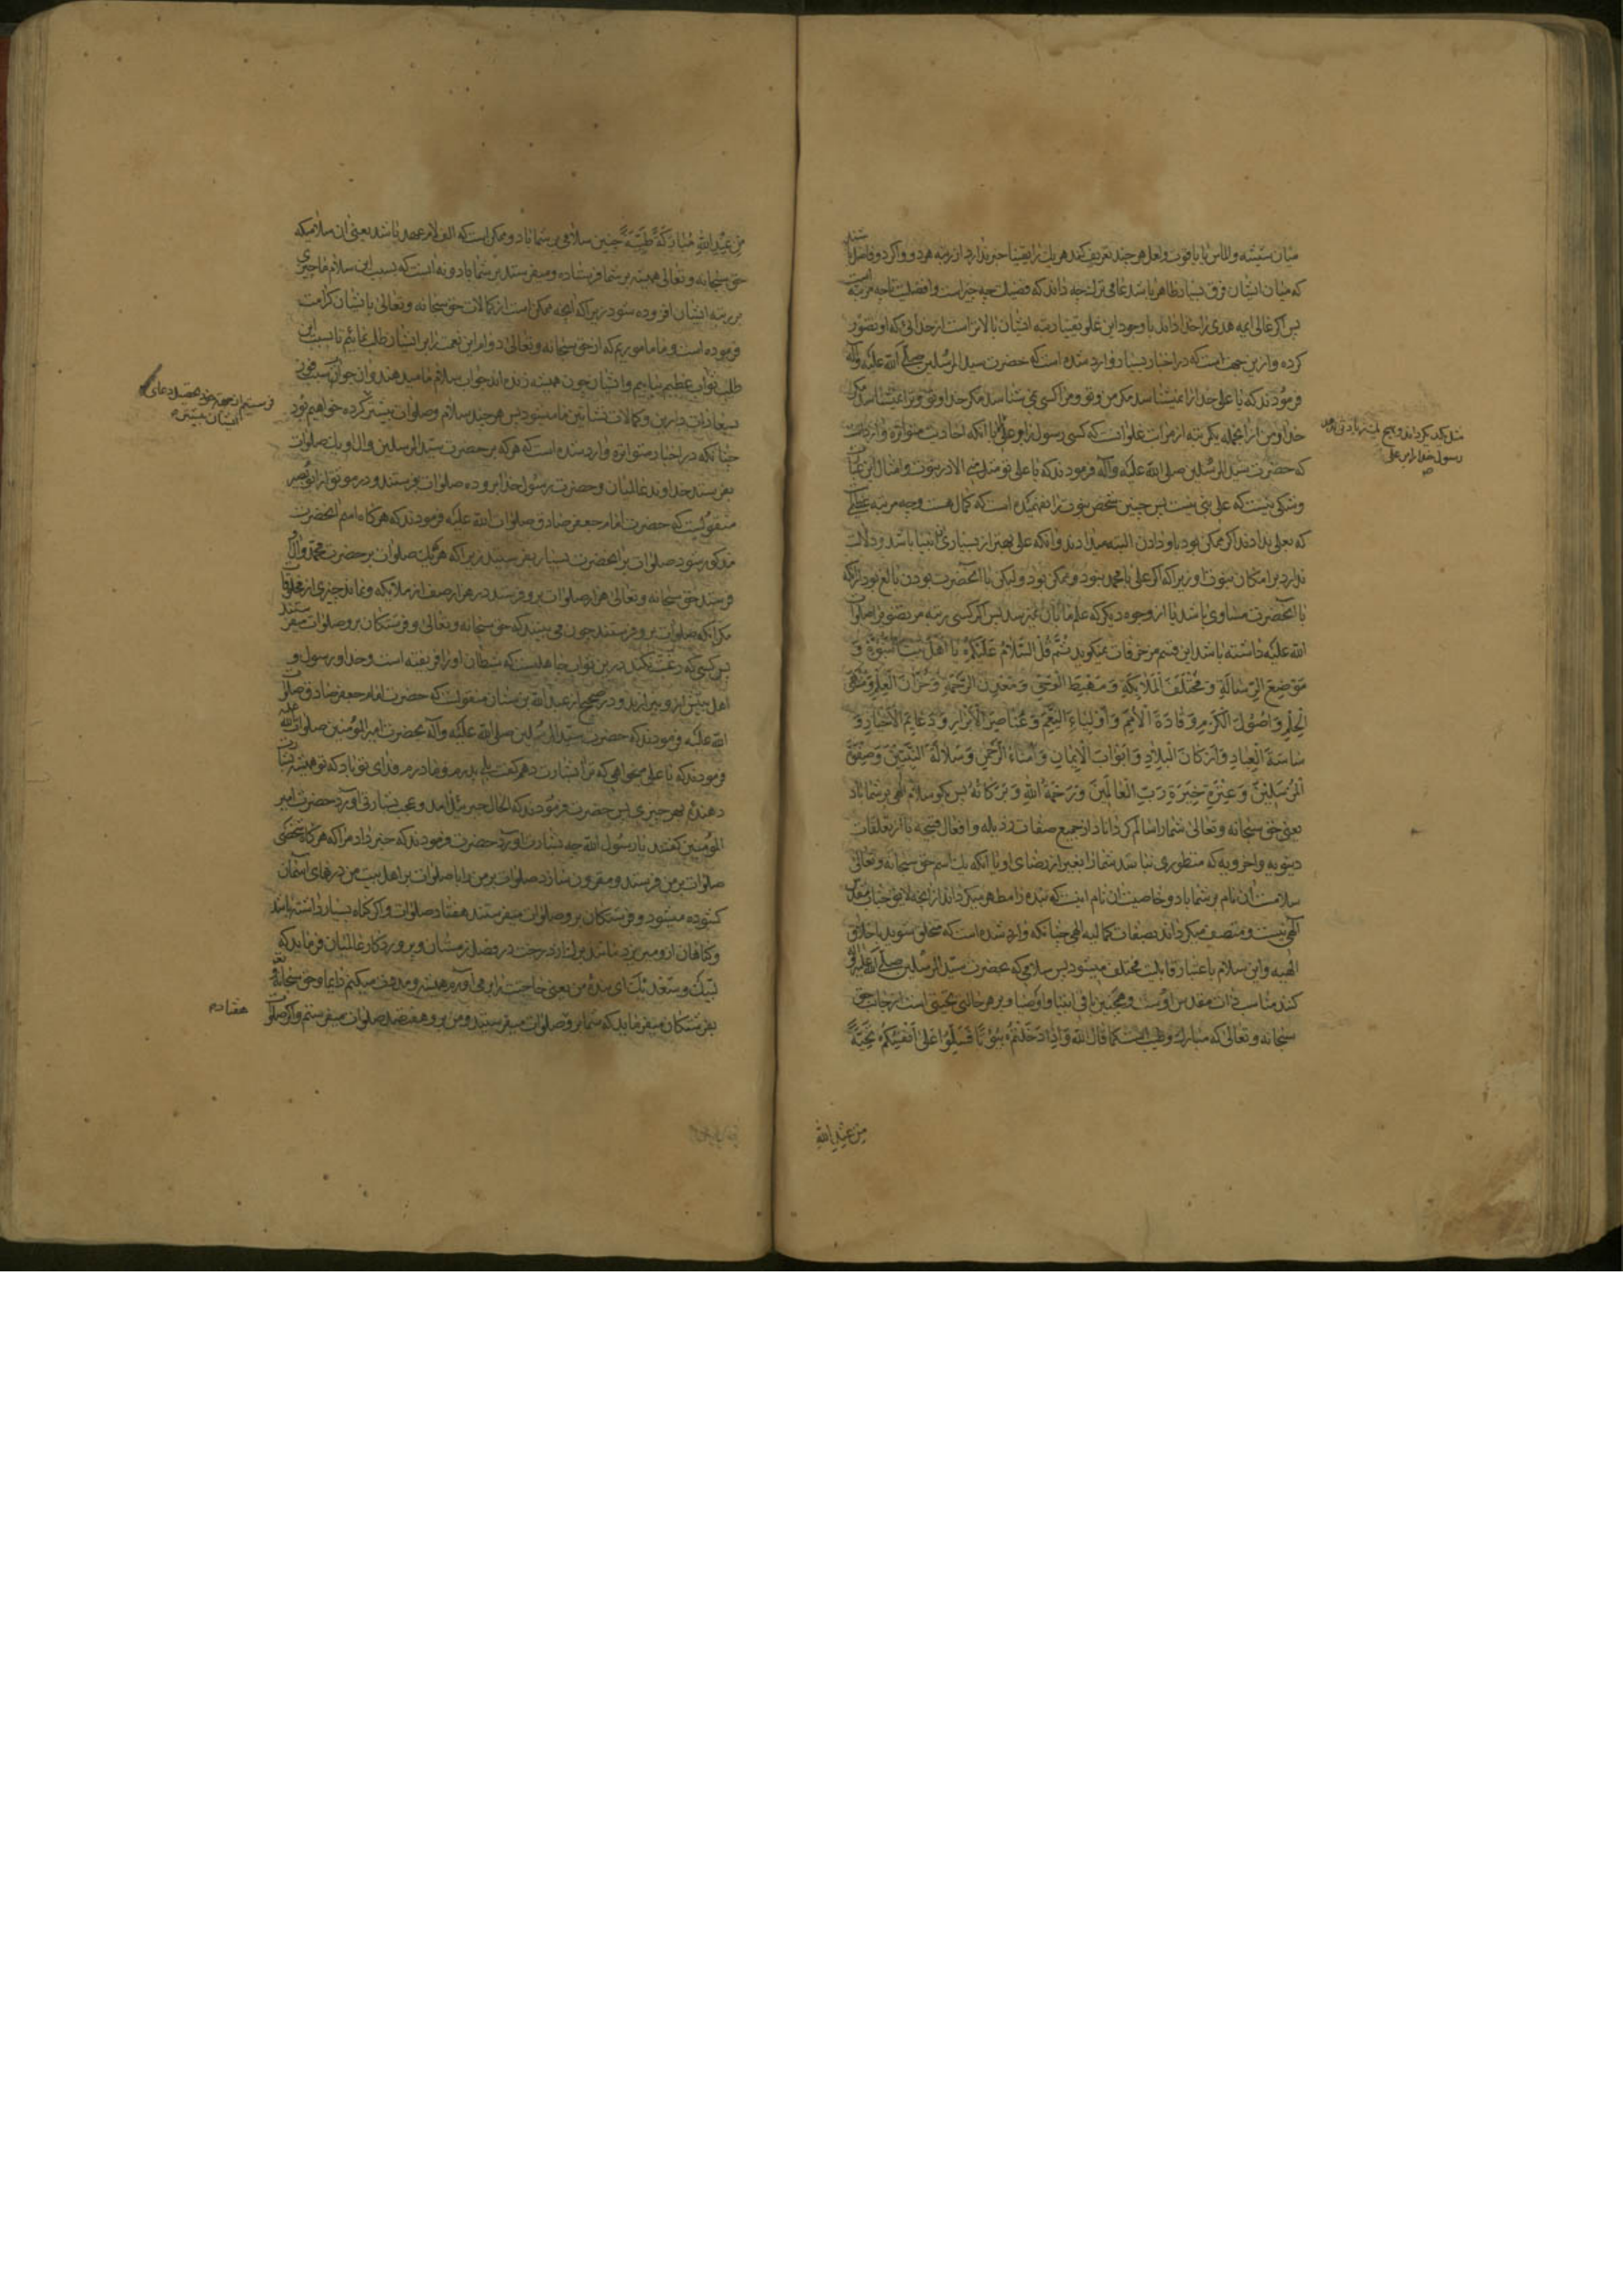 میان شیشه و الماس یا یاقوت و لعل هر چند تعریف کند هر یك را یقینا خبر ندارد از رتبه هر دو و اگر دو فاضل باشند
که میان ایشان فرق بسیار ظاهر باشد عامی ترك چه داند که فضیلت چه چیز است و افضلیت تا چه مرتبه است
پس اگر غالی ایمه هدی را خدا داند با وجود این غلو یقینا رتبه ایشان بالاتر است از خدائی که او تصور
کرده و ازین جهت است که در اخبار بسیار وارد شده است که حضرت سید المرسلین صلی الله علیه و آله
فرمودند که یا علی خدا را نمیشناسد مگر من و تو و مرا کسی نمی شناسد مگر خدا و تو و ترا نمیشناسد مگر
خدا و من از انجمله یکی رتبه از مراتب غلو انست که کسی رسول را و علی را با آنکه احادیث متواتره وارد است
که حضرت سید المرسلین صلی الله علیه وآله فرمودند که یا علی تو مثل منی الا در نبوت و امثال این عبارات
و شکی نیست که علی نبی نیست پس چنین شخص نبوت را نفهمیده است که کمال هست و چه مرتبه عظیم
که بعلی ندادند اگر ممکن بود باو دادن البته میدادند و آنکه علی بهتر از بسیاری از انبیا باشد دلالت
ندارد بر امکان نبوت او زیرا که اگر علی با محمد نبود و ممکن بود ولیکن با آنحضرت بودن مانع بود از آنکه
با آنحضرت مساوی باشد یا از وجوه دیگر که علم ما بآن نمیرسد پس اگر کسی رتبه مرتضوی صلوات
الله علیه داشته باشد این قسم مزخرفات نمیگوید ثُمَّ قُلِ السَّلَامُ عَلَیْکُمْ یَا أَهْلَ بَیْتِ النُّبُوَّةِ وَ
مَوْضِعَ الرِّسَالَةِ وَ مُخْتَلَفَ الْمَلَائِکَةِ وَ مَهْبِطَ الْوَحْیِ وَ مَعْدِنَ الرَّحْمَةِ وَ خُزَّانَ الْعِلْمِ وَ مُنْتَهَی
الْحِلْمِ وَ أُصُولَ الْکَرَمِ وَ قَادَةَ الْأُمَمِ وَ أَوْلِیَاءَ النِّعَمِ وَ عَنَاصِرَ الْأَبْرَارِ وَ دَعَائِمَ الْأَخْیَارِ وَ
سَاسَةَ الْعِبَادِ وَ أَرْکَانَ الْبِلَادِ وَ أَبْوَابَ الْإِیمَانِ وَ أُمَنَاءَ الرَّحْمٰنِ وَ سُلَالَةَ النَّبِیِّینَ وَ صِفْوَةَ
الْمُرْسَلِینَ وَ عِتْرَةَ خِیَرَةِ رَبِّ الْعَالَمِینَ وَ رَحْمَةُ اللهِ وَ بَرَکَاتُهُ پس بگو سلام الهی بر شما باد
یعنی حق سبحانه و تعالی شما را سالم گرداناد از جمیع صفات رذیله و افعال قبیحه تا از تعلقات
دنیویه و اخرویه که منظوری نباشد شما را بغیر از رضای او یا آنکه یك اسم حق سبحانه و تعالی
سلامست آن نام بر شما باد و خاصیت آن نام اینست که بنده را مطهر میگرداند از آنچه لایق جناب مقدس
الهی نیست و متصف میگرداند بصفات کمالیه الهی چنانکه وارد شده است که متخلق شوید باخلاق
الهیه و این سلام باعتبار قابلیت مختلف میشود پس سلامی که بحضرت سید المرسلین صلی الله علیه وآله
کند مناسب ذات مقدس اوست و همچنین باقی انبیا و اوصیا و بر هر حالتی تحیتی است از جانب حق
سبحانه و تعالی که مبارك و طیب است کما قال الله وَ إِذَا دَخَلْتُمْ بُیُوتًا فَسَلِّمُوا عَلَی أَنْفُسِکُمْ تَحِیَّةً
من عند الله
رسول خدا را بر علی
مِنْ عِنْدِ اللهِ مُبَارَکَةً طَیِّبَةً چنین سلامی بر شما باد و ممکن است که الف لام عهد باشد یعنی آن سلامیکه
حق سبحانه و تعالی همیشه بر شما فرستاده و میفرستد بر شما باد و نه آنست که بسبب این سلام ما چیزی
بر رتبه ایشان افزوده شود زیرا که آنچه ممکن است از کمالات حق سبحانه و تعالی بایشان کرامت
فرموده است و ما ماموریم که از حق سبحانه و تعالی دوام این نعمت را بر ایشان طلب نمائیم تا بسبب این
طلب ثواب عظیم بیابیم و ایشان چون همیشه زنده اند جواب سلام ما میدهند و آن جواب سبب فوز
بسعادات دارین و کمالات نشاتین ما میشود پس هر چند سلام و صلوات بیشتر کرده خواهیم بود
چنانکه در اخبار متواتره وارد شده است که هر که بر حضرت سید المرسلین و آل او یك صلوات
بفرستد خداوند عالمیان و حضرت رسول خدا برو ده صلوات بفرستند و در موثق از ابو بصیر
منقولست که حضرت امام جعفر صادق صلوات الله علیه فرمودند که هر گاه نام آنحضرت
مذکور شود صلوات بر آنحضرت بسیار بفرستید زیرا که هر که یك صلوات بر حضرت محمد و آل
فرستد حق سبحانه و تعالی هزار صلوات برو فرستد در هزار صف از ملائکه و نماند چیزی از مخلوقات
مگر آنکه صلوات برو فرستند چون می بینند که حق سبحانه و تعالی و فرشتگان برو صلوات میفرستند
پس کسی که رغبت نکند درین ثواب جاهلست که شیطان او را فریفته است و خدا و رسول و
اهل بیتش ازو بیزارند و در صحیح از عبد الله بن سنان منقولست که حضرت امام جعفر صادق صلوات
الله علیه فرمودند که حضرت سید المرسلین صلی الله علیه وآله بحضرت امیر المؤمنین صلوات الله علیه
فرمودند که یا علی میخواهی که ترا بشارت دهم گفت بلی پدرم و مادرم فدای تو باد که تو همیشه بشارت
دهندهٔ بهر چیزی پس حضرت فرمودند که الحال جبرئیل آمد و عجب بشارتی آورد حضرت امیر
المؤمنین گفتند یا رسول الله چه بشارت آورد حضرت فرمودند که خبر داد مرا که هر گاه شخصی
صلوات بر من فرستد و مقرون سازد صلوات بر من را با صلوات بر اهل بیت من درهای آسمان
گشوده میشود و فرشتگان برو صلوات میفرستند هفتاد صلوات و اگر گناه بسیار داشته باشد
و گناهان ازو میریزد مانند برگ از درخت در فصل زمستان و پروردگار عالمیان فرماید که
لبیك و سعدیك ای بندهٔ من یعنی حاجتت را بر می آورم همیشه و مددت میکنم دایما و حق سبحانه و تعالی
بفرشتگان میفرماید که شما برو صلوات میفرستید و من برو هفتصد صلوات میفرستم و اگر صلوات
ایشان بیشتر
هفتاد